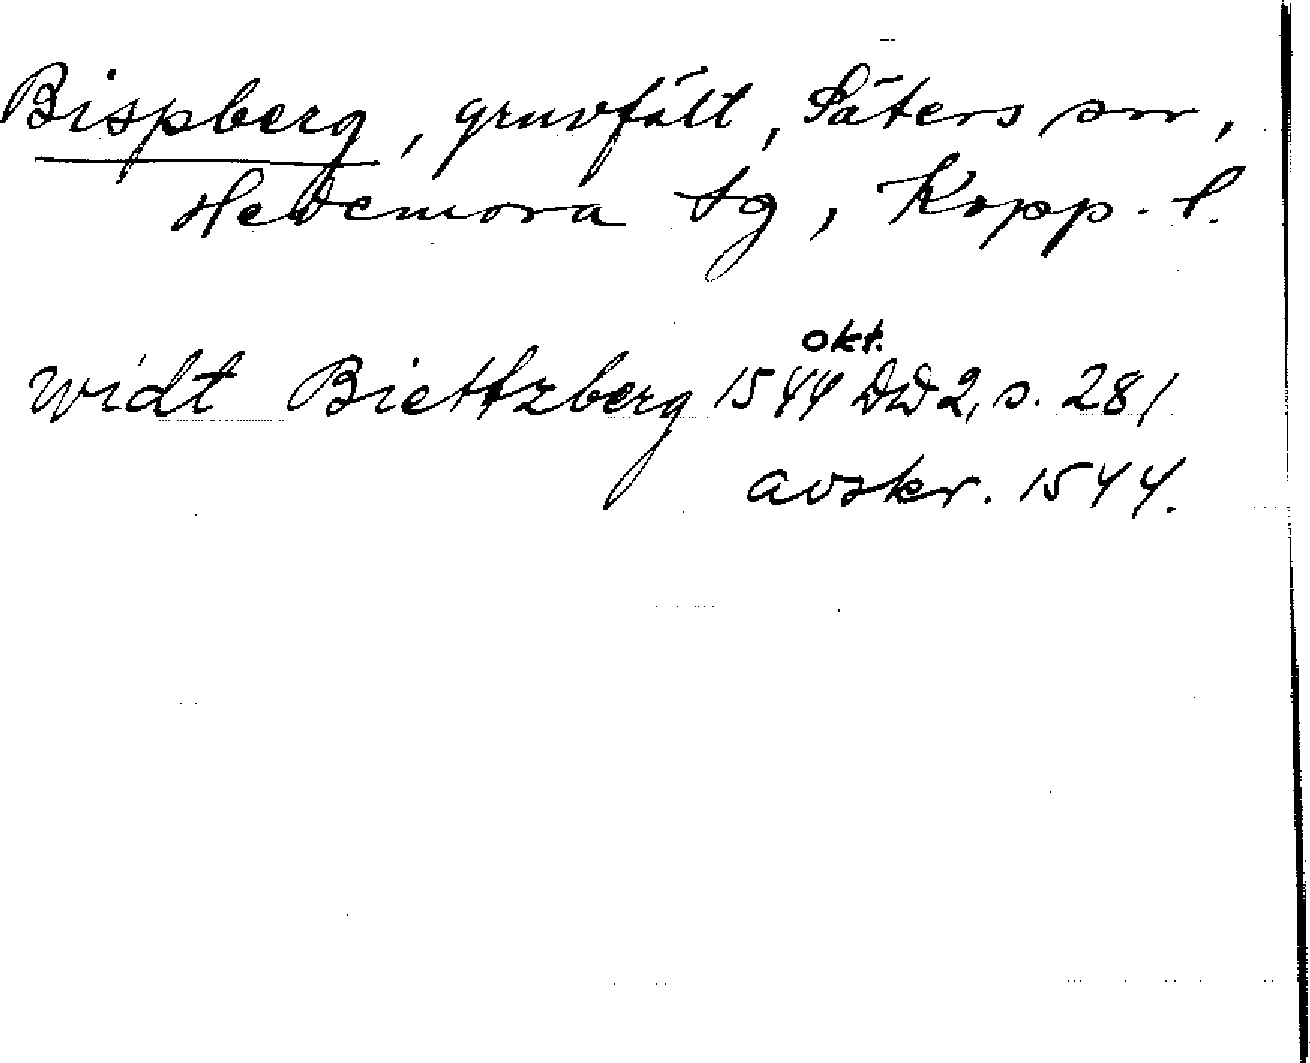 Bispberg, gruvfält, Säters sn,
Hedemora tg, Kopp. l.
okt.
widt Biettzberg 1544 DD 2, s. 281
avskr. 1544.